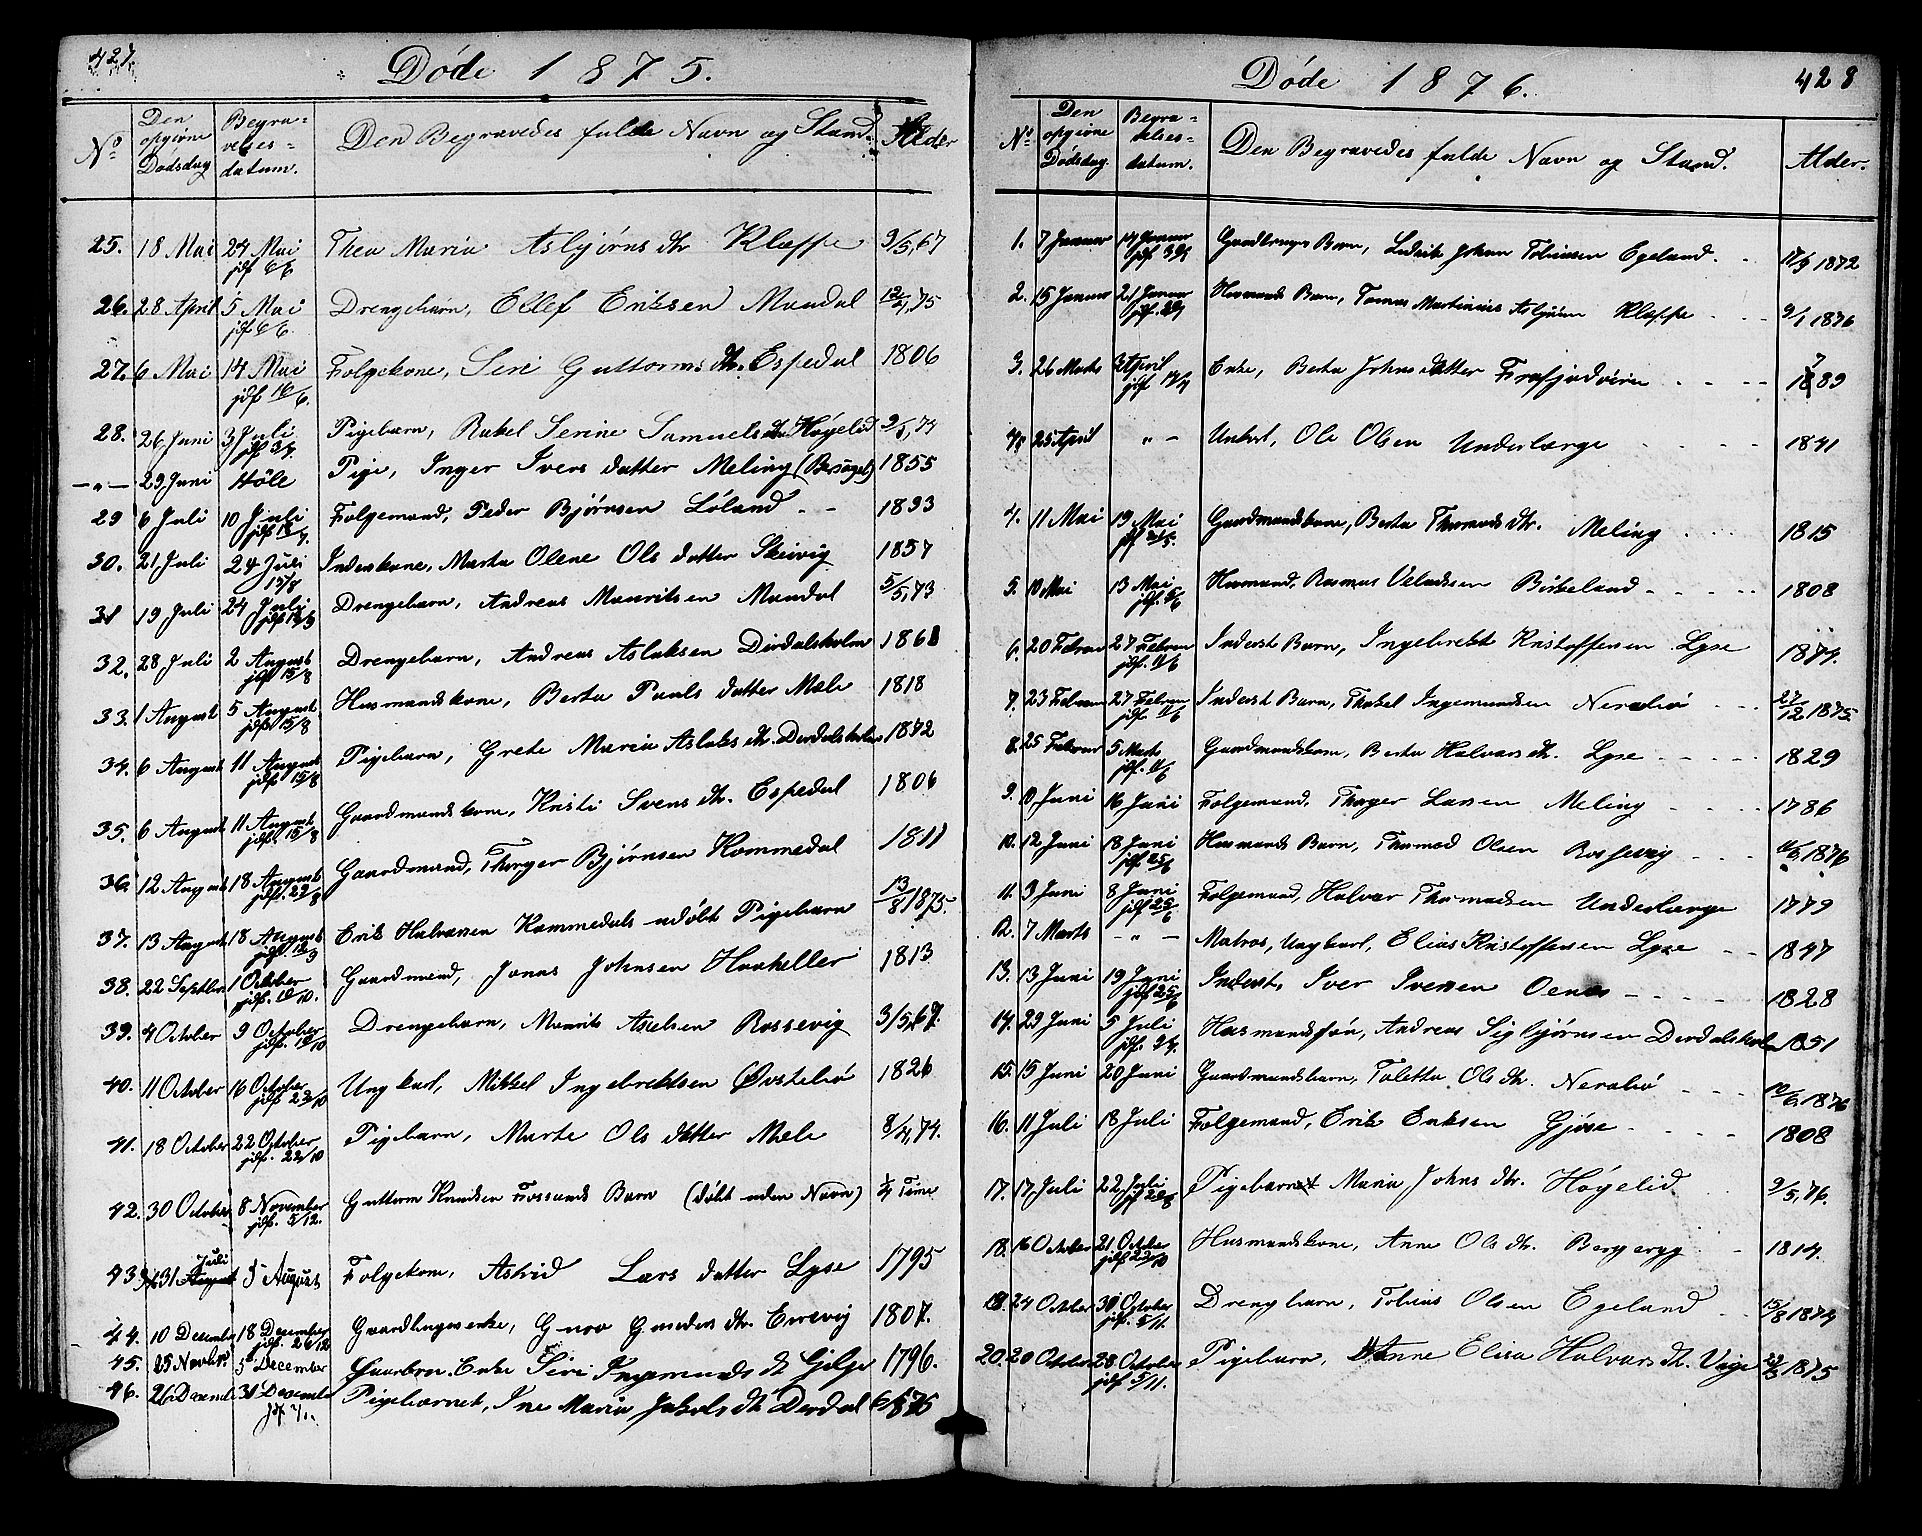 427.
Døde 1875.
No
Den opgivne Dødsdag
Begravelsesdatum.
Den Begravedes fulde Navn og Stand.
Alder
25. 18 Mai 24 Mai jdf 6/6 Thea Maria Asbjørns dtr Kleppe 9/5,67
26. 28 April 5 Mai jdf 6/6 Drengebarn, Ellef Eriksen Mandal 12/4,75
27. 6 Mai 14 Mai jdf 16/6. Folgekone, Seri Guttorms dtr. Espedal 1806
28. 26 Juni 3 Juli jdf 3/7. Pigebarn, Rakel Serine Samuels dtr Høgelid 2/5,74
—"— 29 Juni Høle Pige, Inger Ivers datter Meling (Bersagel) 1855
29 6 Juli 10 Juli Folgemand, Peder Bjørnsen Løland - - 1893
30. 21 Juli 24 Juli 15/8 Inderstkone, Marta Olene Ols datter Skeivig 1857
31 19 Juli 24 Juli Drengebarn, Andreas Mauritsen Mandal 5/5,73
32. 28 Juli 2 August jdf 15/8 Drengebarn, Andreas Aslaksen Dirdalsholm 1861
33. 1 August 5 August jdf. 15/8 Husmandskone, Berta Pauls datter Mæle 1818
34. 6 August 11 August jdf. 15/8 Pigebarn, Grete Maria Aslaks dtr. Derdalsholm 1872
35. 6 August 11 August jdf. 15/8 Gaardmandskone, Kristi Svens dtr. Espedal 1806
36. 12 August 18 August jdf. 29/8 Gaardmand, Thorger Bjørnsen Hommedal 1811
37. 13 August 18 August Erik Halvorsen Hommedals udøbt Pigebarn 13/8 1875.
38. 22 Septbr. 1 October jdf. 10/10. Gaardmand, Jonas Johnsen Haaheller 1813
39. 4 October 9 October jdf. 10/10 Drengebarn, Maurits Axelsen Rossevig 3/5,67.
40. 11 October 16 October jdf 23/10 Ungkarl, Mikkel Ingebrektsen Øvstebø 1826
41. 18 October 22 October jdf. 22/10 Pigebarn, Marte Ols datter Mæle 8/4,74.
42. 30 October 8 November jdf. 5/12. Guttorm Knudsen Fossands Barn (døbt uden Navn) 1/4 Time
43. 31 Juli 5 August Folgekone, Astrid Lars datter Lyse 1795
44. 10 December 18 December jdf. 26/12 Gaardbrugerenke, Guro Gmeders dtr. Eirevig 1807.
45. 25 Novbr. 5te December Gaardbr. Enke Siri Ingemunds dtr Gjølje 1796.
46. 26 Decemb 31 December Pigebarnet, Ine Maria Jakobs dtr Derdal 1875
428
Døde 1876.
No
Den opgivne Dødsdag
Begravelsesdatum.
Den Begravedes fulde Navn og Stand.
Alder.
1. 7 Januar 14 Januar jdf 30/1 Gaardbruger Barn, Ludvik Johan Tobiassen Egeland. 17/9 1872
2. 15 Januar 21 Januar Husmands Barn, Tomas Martinius Asbjørns Kleppe 9/1 1876
3. 26 Marts 3 April jdf 17/4 Enke, Berta Johns datter Frafjordøiren 1889
4. 25 April " - Unkarl, Ole Olsen Underberge 1841
4. 11 Mai 19 Mai Gaardmandskone, Berta Thormods dtr. Meling 1815
5. 10 Mai 13 Mai jdf. 5/6 Husmand, Rasmus Veladsen Birkeland 1808
6. 20 Februar 27 Februar jdf. 11/6 Inderst Barn, Ingebrekt Kristoffersen Lyse 1874.
7. 23 Februar 27 Februar jdf. 11/6 Inderst Barn, Thorkel Ingemundsen Nerebø 27/12 1875.
8. 25 Februar 5 Marts jdf. 11/6 Gaardmandskone, Berta Halvors dtr. Lyse 1829
9. 10 Juni 16 Juni Folgemand, Thorger Larsen Meling 1786
10. 12 Juni 18 Juni jdf 25/6 Husmands Barn, Thormod Olsen Rossevig 1876
11. 3 Juni 8 Juni jdf 25/6 Folgemand, Halvor Thormodsen Underberge 1779
12. 7 Marts - " - Matros, Ungkarl, Elias Kristoffersen Lyse 1847
13. 13 Juni 19 Juni jdf 25/6 Inderst, Iver Iversen Oenæs 1828
14. 29 Juni 5 Juli jdf. 9/7. Husmandssøn, Andreas Sigbjørnsen Derdalsholm 1851
15. 15 Juni 20 Juni Gaardmandsbarn, Toletta Ols dtr. Nerebø 10/6 1876
16. 11 Juli 18 Juli Folgemand, Erik Eriksen Gjøse 1808
17. 17 Juli 22 Juli Pigebarnet Maria Johns dtr. Høgelid 9/5,76.
18. 16 October 21 October jdf 22/10 Husmandskone, Anne Ols dtr. Bergeryg 1814.
19. 24 October 30 October jdf. 5/11. Drengbarn, Tobias Olsen Egeland 15/8 1874
20. 20 October 28 October jdf. 5/11. Pigebarn, Anne Elisa Halvors dtr. Vige 1875